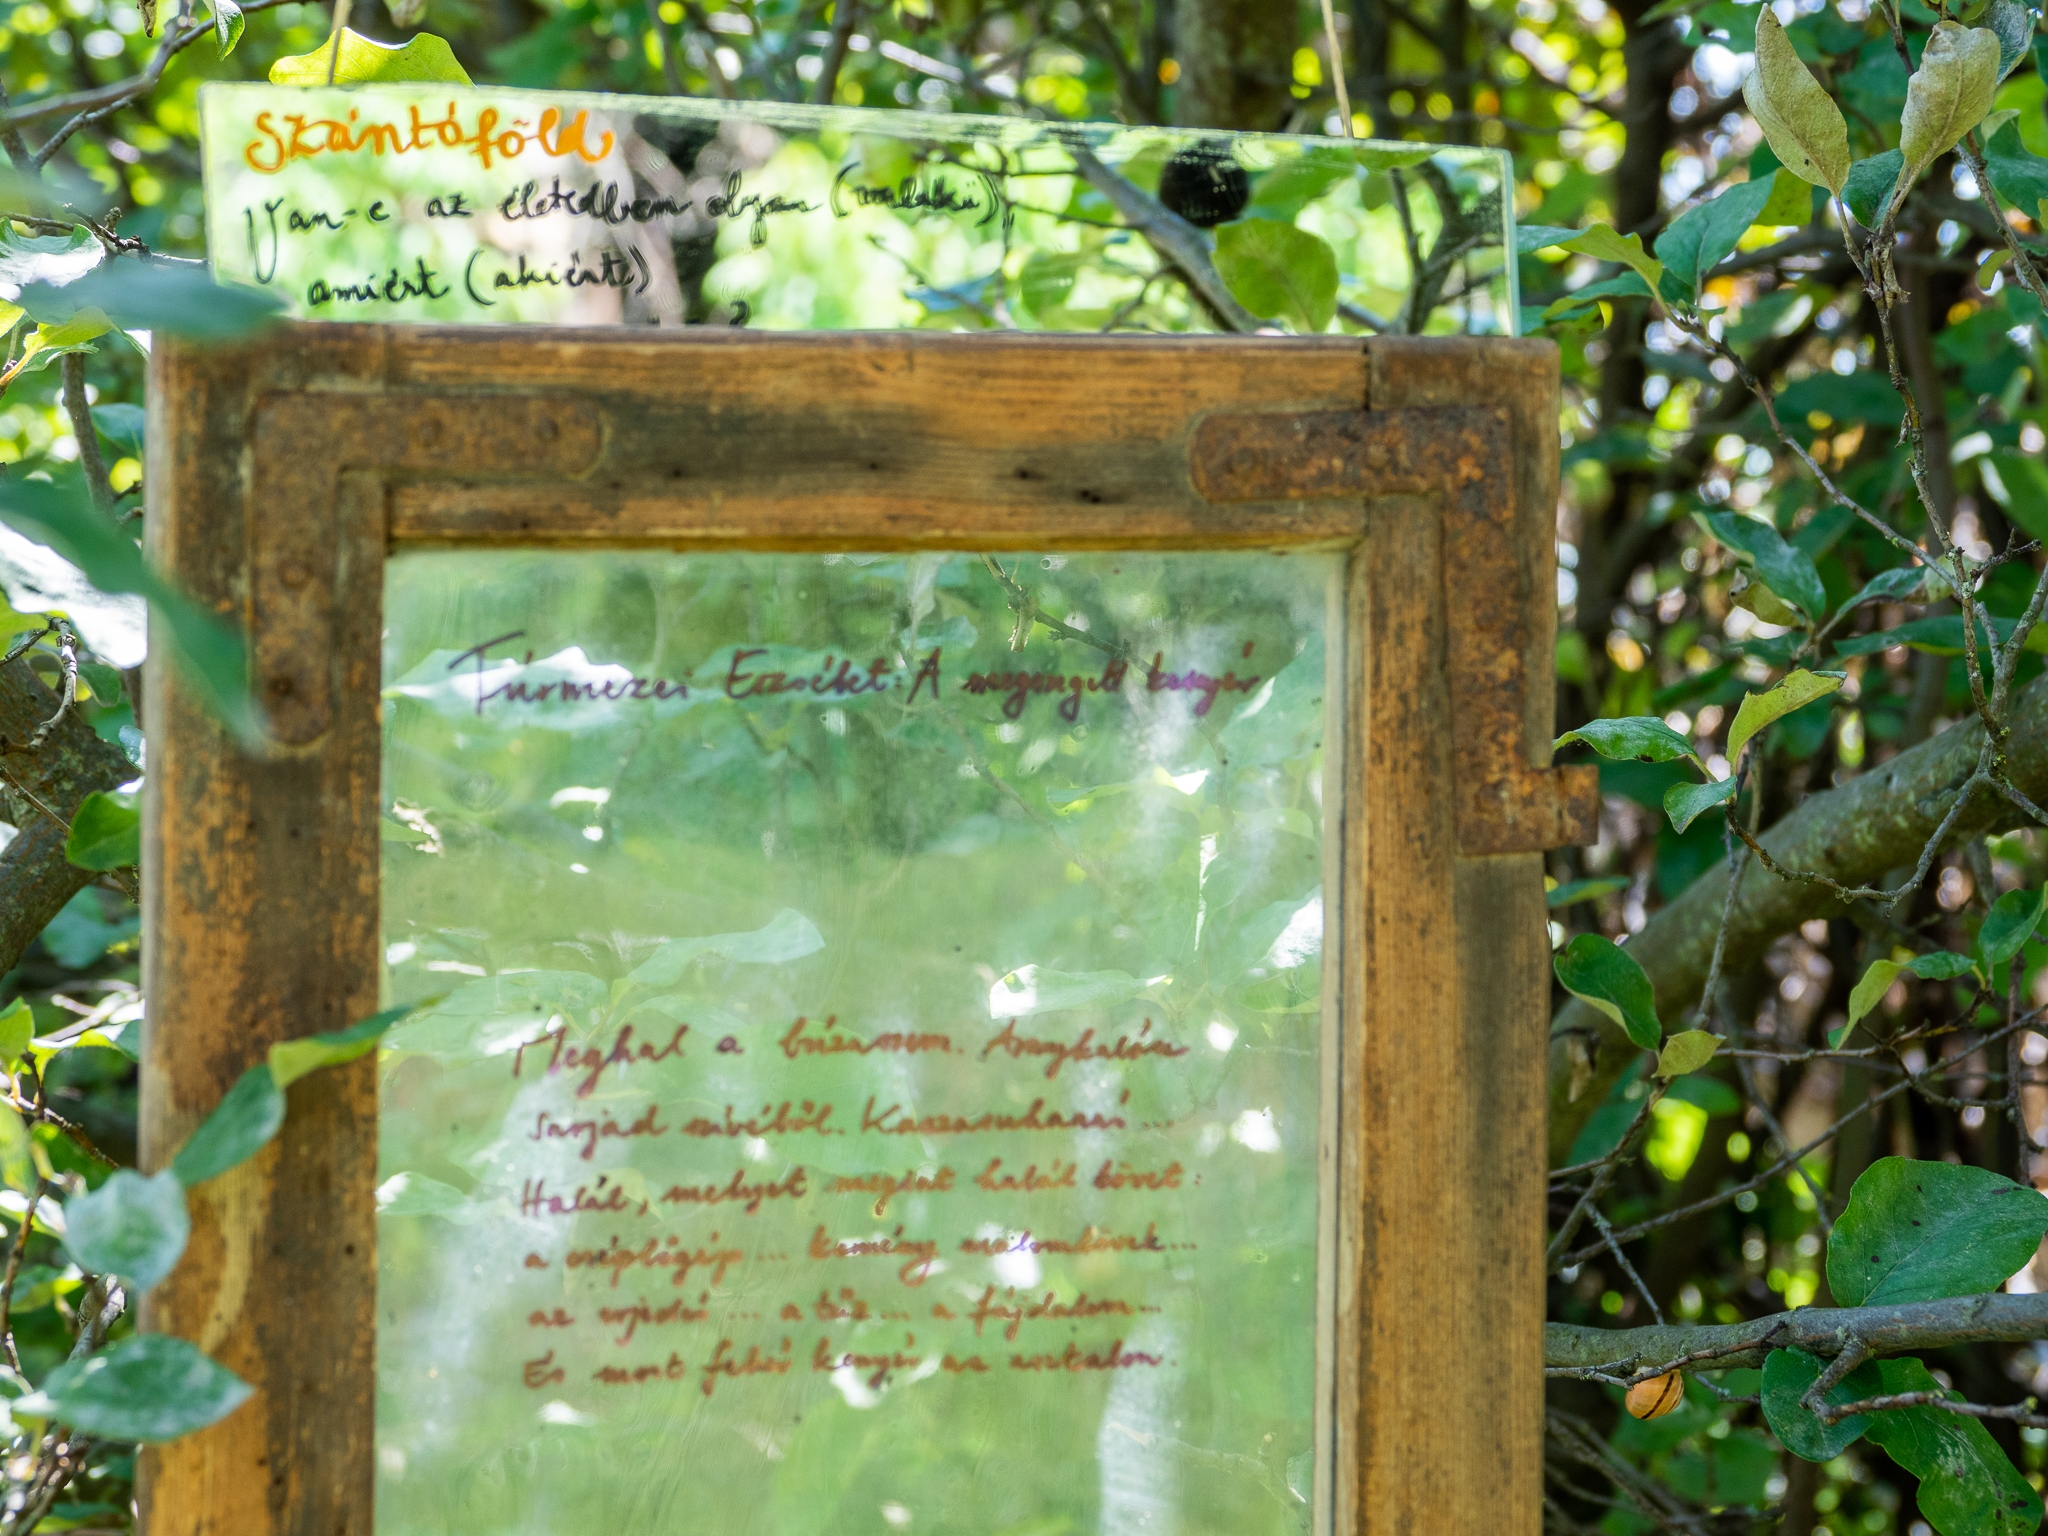 Szántóföld
Van-e az életedben olyan (valaki),
amiért (akiért)
?
Túrmezei Erzsébet: A megengett kenyér
Meghal a búzaszem. Aranykalász
sarjad szívéből. Kaszasuhanás...
Halál, melyet megint halál követ:
a cséplőgép... kemény malomkövek...
az izzó... a tűz... a fájdalom...
És most fehér kenyér az asztalon.